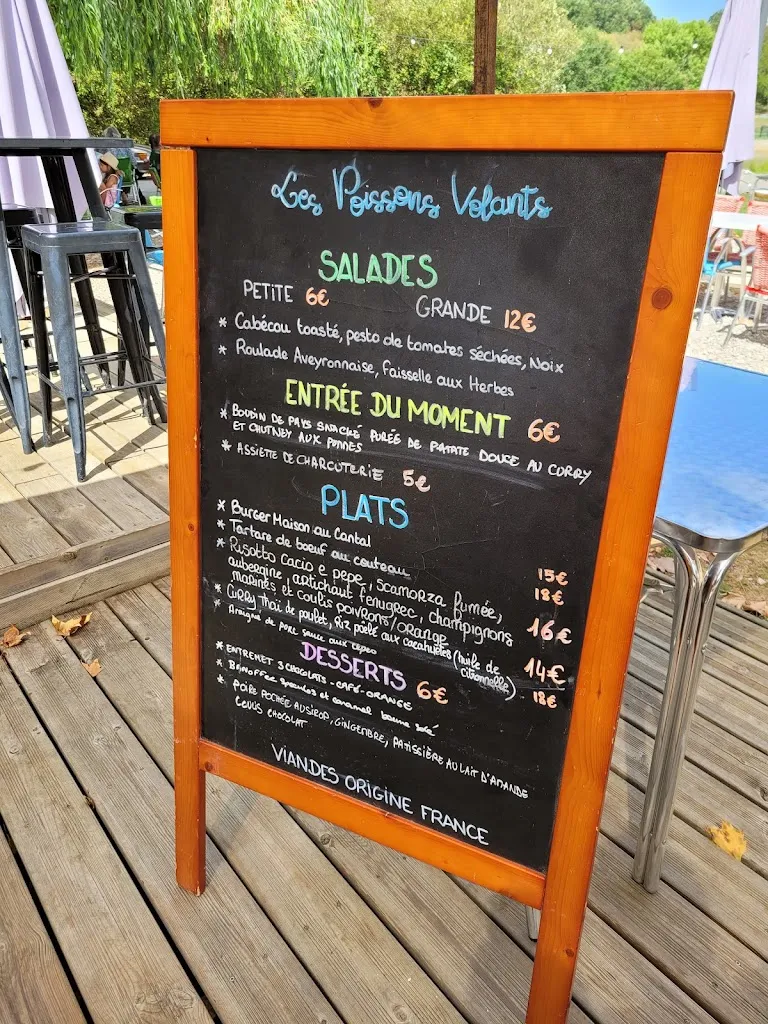 Les Poissons Volants
SALADES
PETITE 6€ GRANDE 12€
* Cabécou toasté, pesto de tomates séchées, Noix
* Roulade Aveyronnaise, Faisselle aux Herbes
ENTRÉE DU MOMENT 6€
* BOUDIN DE PAYS SNACKÉ PURÉE DE PATATE DOUCE AU CURRY
ET CHUTNEY AUX POMMES
* ASSIETTE DE CHARCUTERIE 5€
PLATS
* Burger Maison au Cantal 15€
* Tartare de boeuf au couteau 18€
* Risotto cacio e pepe, Scamorza fumée,
aubergine, artichaut fenugrec, champignons
marinés et coulis poivrons/orange 16€
* Curry thaï de poulet, Riz poêlé aux cacahuètes (huile de
citronnelle) 14€
* Araigne de porc sauce aux cèpes 18€
DESSERTS 6€
* ENTREMET 3 CHOCOLATS-CAFÉ-ORANGE
* BANOFFEE speculos et caramel beurre salé
* POIRE POCHÉE AU SIROP, GINGEMBRE, PATISSIÈRE AU LAIT D'AMANDE
COULIS CHOCOLAT
VIANDES ORIGINE FRANCE